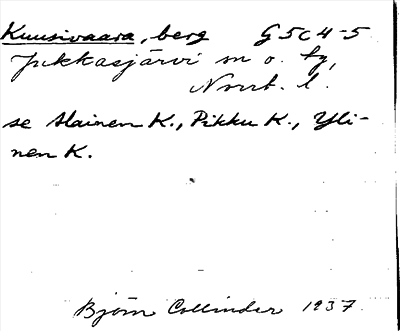 Kuusivaara, berg G5c4-5
Jukkasjärvi sn o. tg,
Norrb. l.
se Alainen K., Pikku K., Yli-
nen K.
Björn Collinder 1937